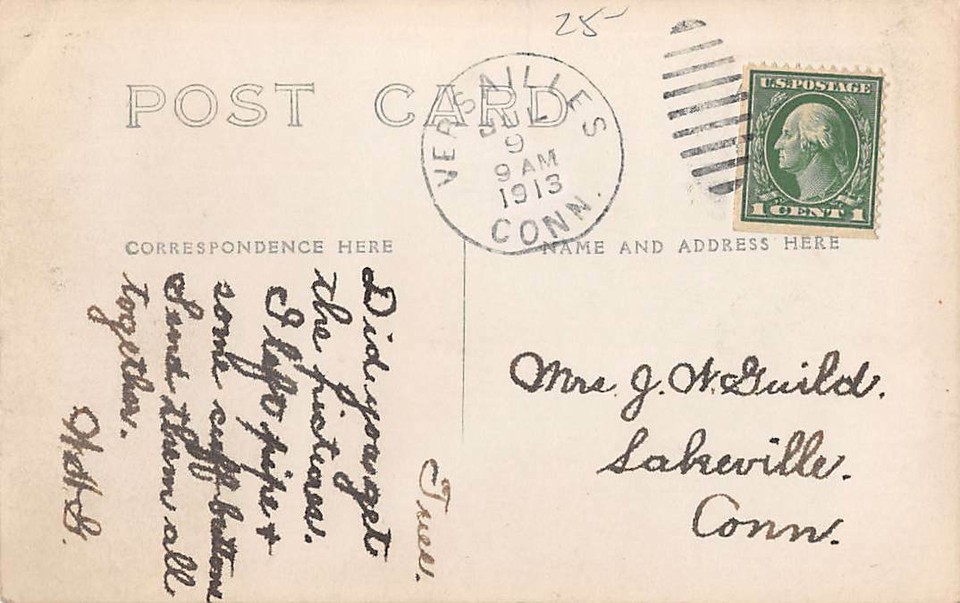 25-
POST CARD
VERSAILLES
JUL
9
9 AM
1913
CONN.
U.S. POSTAGE
1 CENT 1
CORRESPONDENCE HERE
NAME AND ADDRESS HERE
Tues.
Did you get
the pictures.
I left pipe +
some cuff buttons
Send them all
together.
Mrs J. W. Guild.
Lakeville.
Conn.